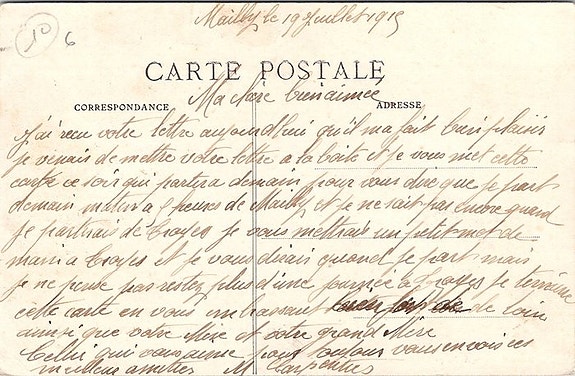 10
6
Mailly le 19 Juillet 1915
CARTE POSTALE
CORRESPONDANCE
ADRESSE
Ma chère bien aimée
J'ai reçu votre lettre aujourd'hui qu'il ma fait bien plaisir
je venais de mettre votre lettre a la boite et je vous met cette
carte ce soir qui partira demain pour vous dire que je part
demain matin a 5 heures de Mailly et je ne sait pas encore quand
je partirais de Troyes je vous mettrais un petit mot de
main a Troyes et je vous dirais quand je part mais
je ne pense pas restez plus d'une journée a Troyes je termine
cette carte en vous embrassant de loin
ainsi que votre Mère et votre grand Mère
Celui qui vous aime pour toujours vous envoie ces
meilleur amitiés M Carpentier